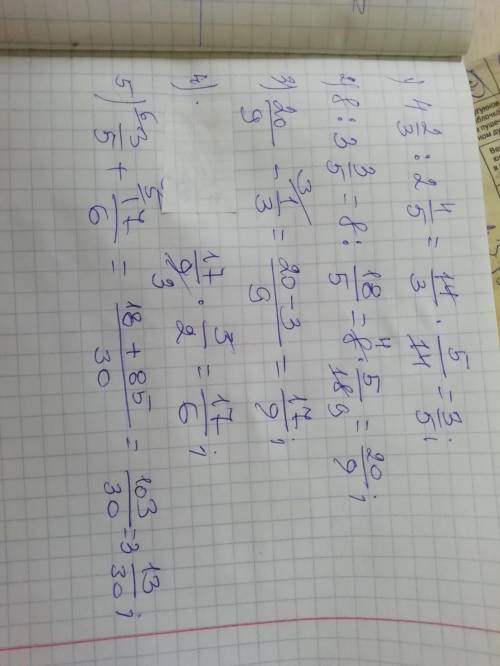 1) 4 2/3 : 2 4/5 = 14/3 · 5/14 = 3/5;
2) 8 : 3 3/5 = 8 : 18/5 = 8 · 5/18 = 20/9;
3) 20/9 - 1/3 = 20-3/9 = 17/9;
4) · 17/9 · 3/2 = 17/6;
5) 3/5 + 17/6 = 18+85/30 = 103/30 = 3 13/30;